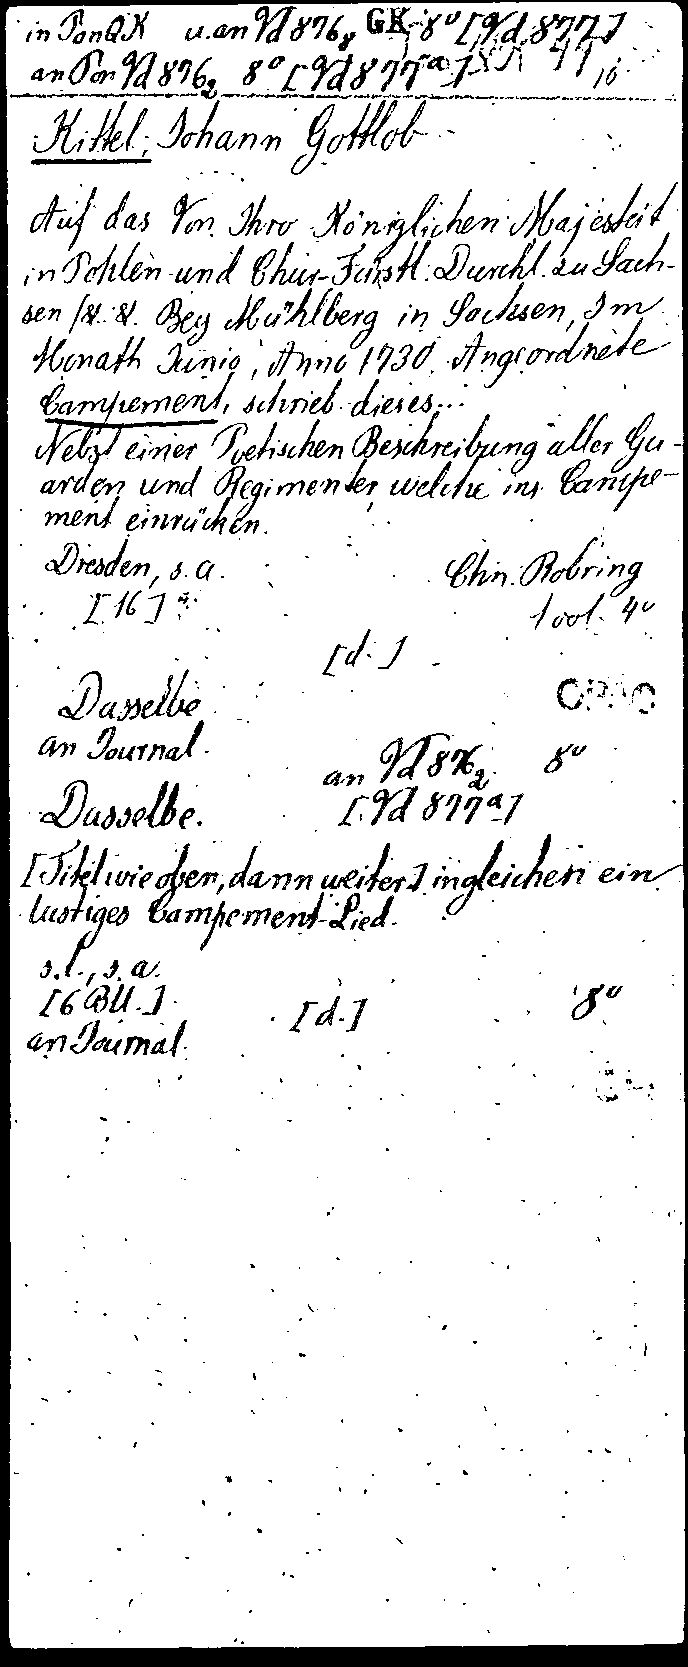 in Pon QK u. an Vd 876 8 GK 8° [Vd 877]
an Pon Vd 876 2 8° [Vd 877 a]
Kittel, Johann Gottlob
Auf das Von Ihro Königlichen Majestät
in Pohlen und Chur-Fürstl. Durchl. zu Sach-
sen /&. &. Bey Mühlberg in Sachsen, Im
Monath Junio, Anno 1730. Angeordnete
Campement, schrieb dieses...
Nebst einer Poetischen Beschreibung aller Gu-
arden und Regimenter, welche ins Campe-
ment einrücken.
Dresden, s. a. Chn. Robring
[16] 1 vol. 4°
[d.]
Dasselbe OPAC
an Journal.
an Vd 876 2 8°
Dasselbe. [Vd 877 a]
[Titel wie oben, dann weiter] ingleichen ein
lustiges Campement-Lied.
s. l., s. a.
[6 Bll.] [d.] 8°
an Journal.